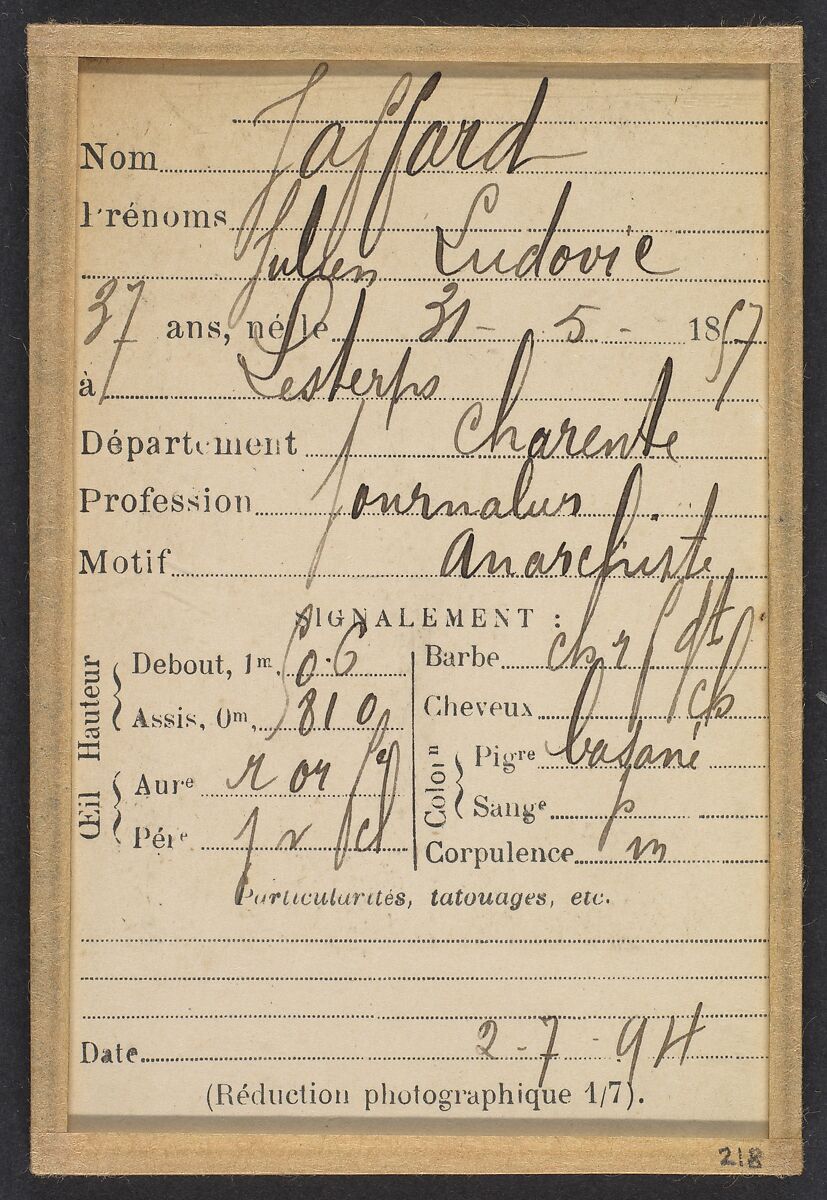 Nom Jaffard
Prénoms Julien Ludovic
37 ans, né le 31 - 5 - 1857
à Lesterps
Département Charente
Profession Journalier
Motif Anarchiste
SIGNALEMENT :
Hauteur
Debout, 1m, 60.6
Assis, 0m, 810
Œil
Aure r or
Pére
Barbe ch r
Cheveux ch
Colon
Pigre basané
Sange p
Corpulence m
Particularités, tatouages, etc.
Date 2 - 7 - 94
(Réduction photographique 1/7).
218